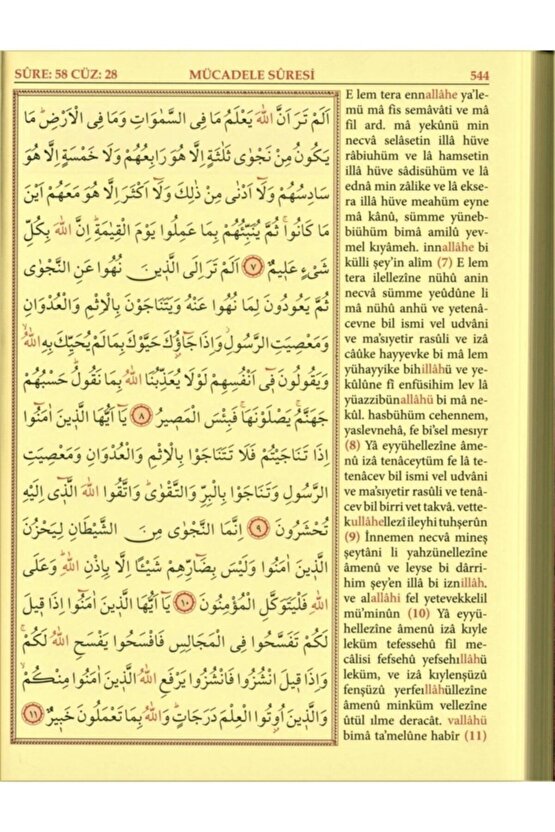 SÛRE: 58 CÜZ: 28 MÜCADELE SÛRESİ 544
اَلَمْ تَرَ اَنَّ اللّٰهَ يَعْلَمُ مَا فِى السَّمٰوَاتِ وَمَا فِى الْاَرْضِۜ مَا
يَكُونُ مِنْ نَجْوٰى ثَلٰثَةٍ اِلَّا هُوَ رَابِعُهُمْ وَلَا خَمْسَةٍ اِلَّا هُوَ
سَادِسُهُمْ وَلَٓا اَدْنٰى مِنْ ذٰلِكَ وَلَٓا اَكْثَرَ اِلَّا هُوَ مَعَهُمْ اَيْنَ
مَا كَانُواۚ ثُمَّ يُنَبِّئُهُمْ بِمَا عَمِلُوا يَوْمَ الْقِيٰمَةِۜ اِنَّ اللّٰهَ بِكُلِّ
شَىْءٍ عَلِيمٌ ﴿٧﴾ اَلَمْ تَرَ اِلَى الَّذِينَ نُهُوا عَنِ النَّجْوٰى
ثُمَّ يَعُودُونَ لِمَا نُهُوا عَنْهُ وَيَتَنَاجَوْنَ بِالْاِثْمِ وَالْعُدْوَانِ
وَمَعْصِيَتِ الرَّسُولِۘ وَاِذَا جَٓاؤُ۫كَ حَيَّوْكَ بِمَا لَمْ يُحَيِّكَ بِهِ اللّٰهُۙ
وَيَقُولُونَ فِٓى اَنْفُسِهِمْ لَوْلَا يُعَذِّبُنَا اللّٰهُ بِمَا نَقُولُۜ حَسْبُهُمْ
جَهَنَّمُۚ يَصْلَوْنَهَاۚ فَبِئْسَ الْمَصِيرُ ﴿٨﴾ يَٓا اَيُّهَا الَّذِينَ اٰمَنُٓوا
اِذَا تَنَاجَيْتُمْ فَلَا تَتَنَاجَوْا بِالْاِثْمِ وَالْعُدْوَانِ وَمَعْصِيَتِ
الرَّسُولِ وَتَنَاجَوْا بِالْبِرِّ وَالتَّقْوٰىۜ وَاتَّقُوا اللّٰهَ الَّذِٓى اِلَيْهِ
تُحْشَرُونَ ﴿٩﴾ اِنَّمَا النَّجْوٰى مِنَ الشَّيْطَانِ لِيَحْزُنَ
الَّذِينَ اٰمَنُوا وَلَيْسَ بِضَٓارِّهِمْ شَيْـًٔا اِلَّا بِاِذْنِ اللّٰهِۜ وَعَلَى
اللّٰهِ فَلْيَتَوَكَّلِ الْمُؤْمِنُونَ ﴿١٠﴾ يَٓا اَيُّهَا الَّذِينَ اٰمَنُٓوا اِذَا قِيلَ
لَكُمْ تَفَسَّحُوا فِى الْمَجَالِسِ فَافْسَحُوا يَفْسَحِ اللّٰهُ لَكُمْۚ
وَاِذَا قِيلَ انْشُزُوا فَانْشُزُوا يَرْفَعِ اللّٰهُ الَّذِينَ اٰمَنُوا مِنْكُمْۙ
وَالَّذِينَ اُو۫تُوا الْعِلْمَ دَرَجَاتٍۜ وَاللّٰهُ بِمَا تَعْمَلُونَ خَبِيرٌ ﴿١١﴾
E lem tera ennallâhe ya'le-
mü mâ fis semâvâti ve mâ
fil ard. mâ yekûnü min
necvâ selâsetin illâ hüve
râbiuhüm ve lâ hamsetin
illâ hüve sâdisühüm ve lâ
ednâ min zâlike ve lâ ekse-
ra illâ hüve meahüm eyne
mâ kânû, sümme yüneb-
biühüm bimâ amilû yev-
mel kıyâmeh. innallâhe bi
külli şey'in alîm (7) E lem
tera ilellezîne nühû anin
necvâ sümme yeûdûne li
mâ nühû anhü ve yetenâ-
cevne bil ismi vel udvâni
ve ma'sıyetir rasûli ve izâ
câûke hayyevke bi mâ lem
yühayyike bihillâhü ve ye-
kûlûne fî enfüsihim lev lâ
yüazzibünallâhü bi mâ ne-
kûl. hasbühüm cehennem,
yaslevnehâ, fe bi'sel mesıyr
(8) Yâ eyyühellezîne âme-
nû izâ tenâceytüm fe lâ te-
tenâcev bil ismi vel udvâni
ve ma'sıyetir rasûli ve tenâ-
cev bil birri vet takvâ. vette-
kullâhellezî ileyhi tuhşerûn
(9) İnnemen necvâ mineş
şeytâni li yahzünellezîne
âmenû ve leyse bi dârri-
him şey'en illâ bi iznillâh.
ve alallâhi fel yetevekkelil
mü'minûn (10) Yâ eyyü-
hellezîne âmenû izâ kıyle
leküm tefessehû fil me-
câlisi fefsehû yefsehıllâhü
leküm, ve izâ kıylenşüzû
fenşüzû yerfeıllâhüllezîne
âmenû minküm vellezîne
ûtül ılme deracât. vallâhü
bimâ ta'melûne habîr (11)